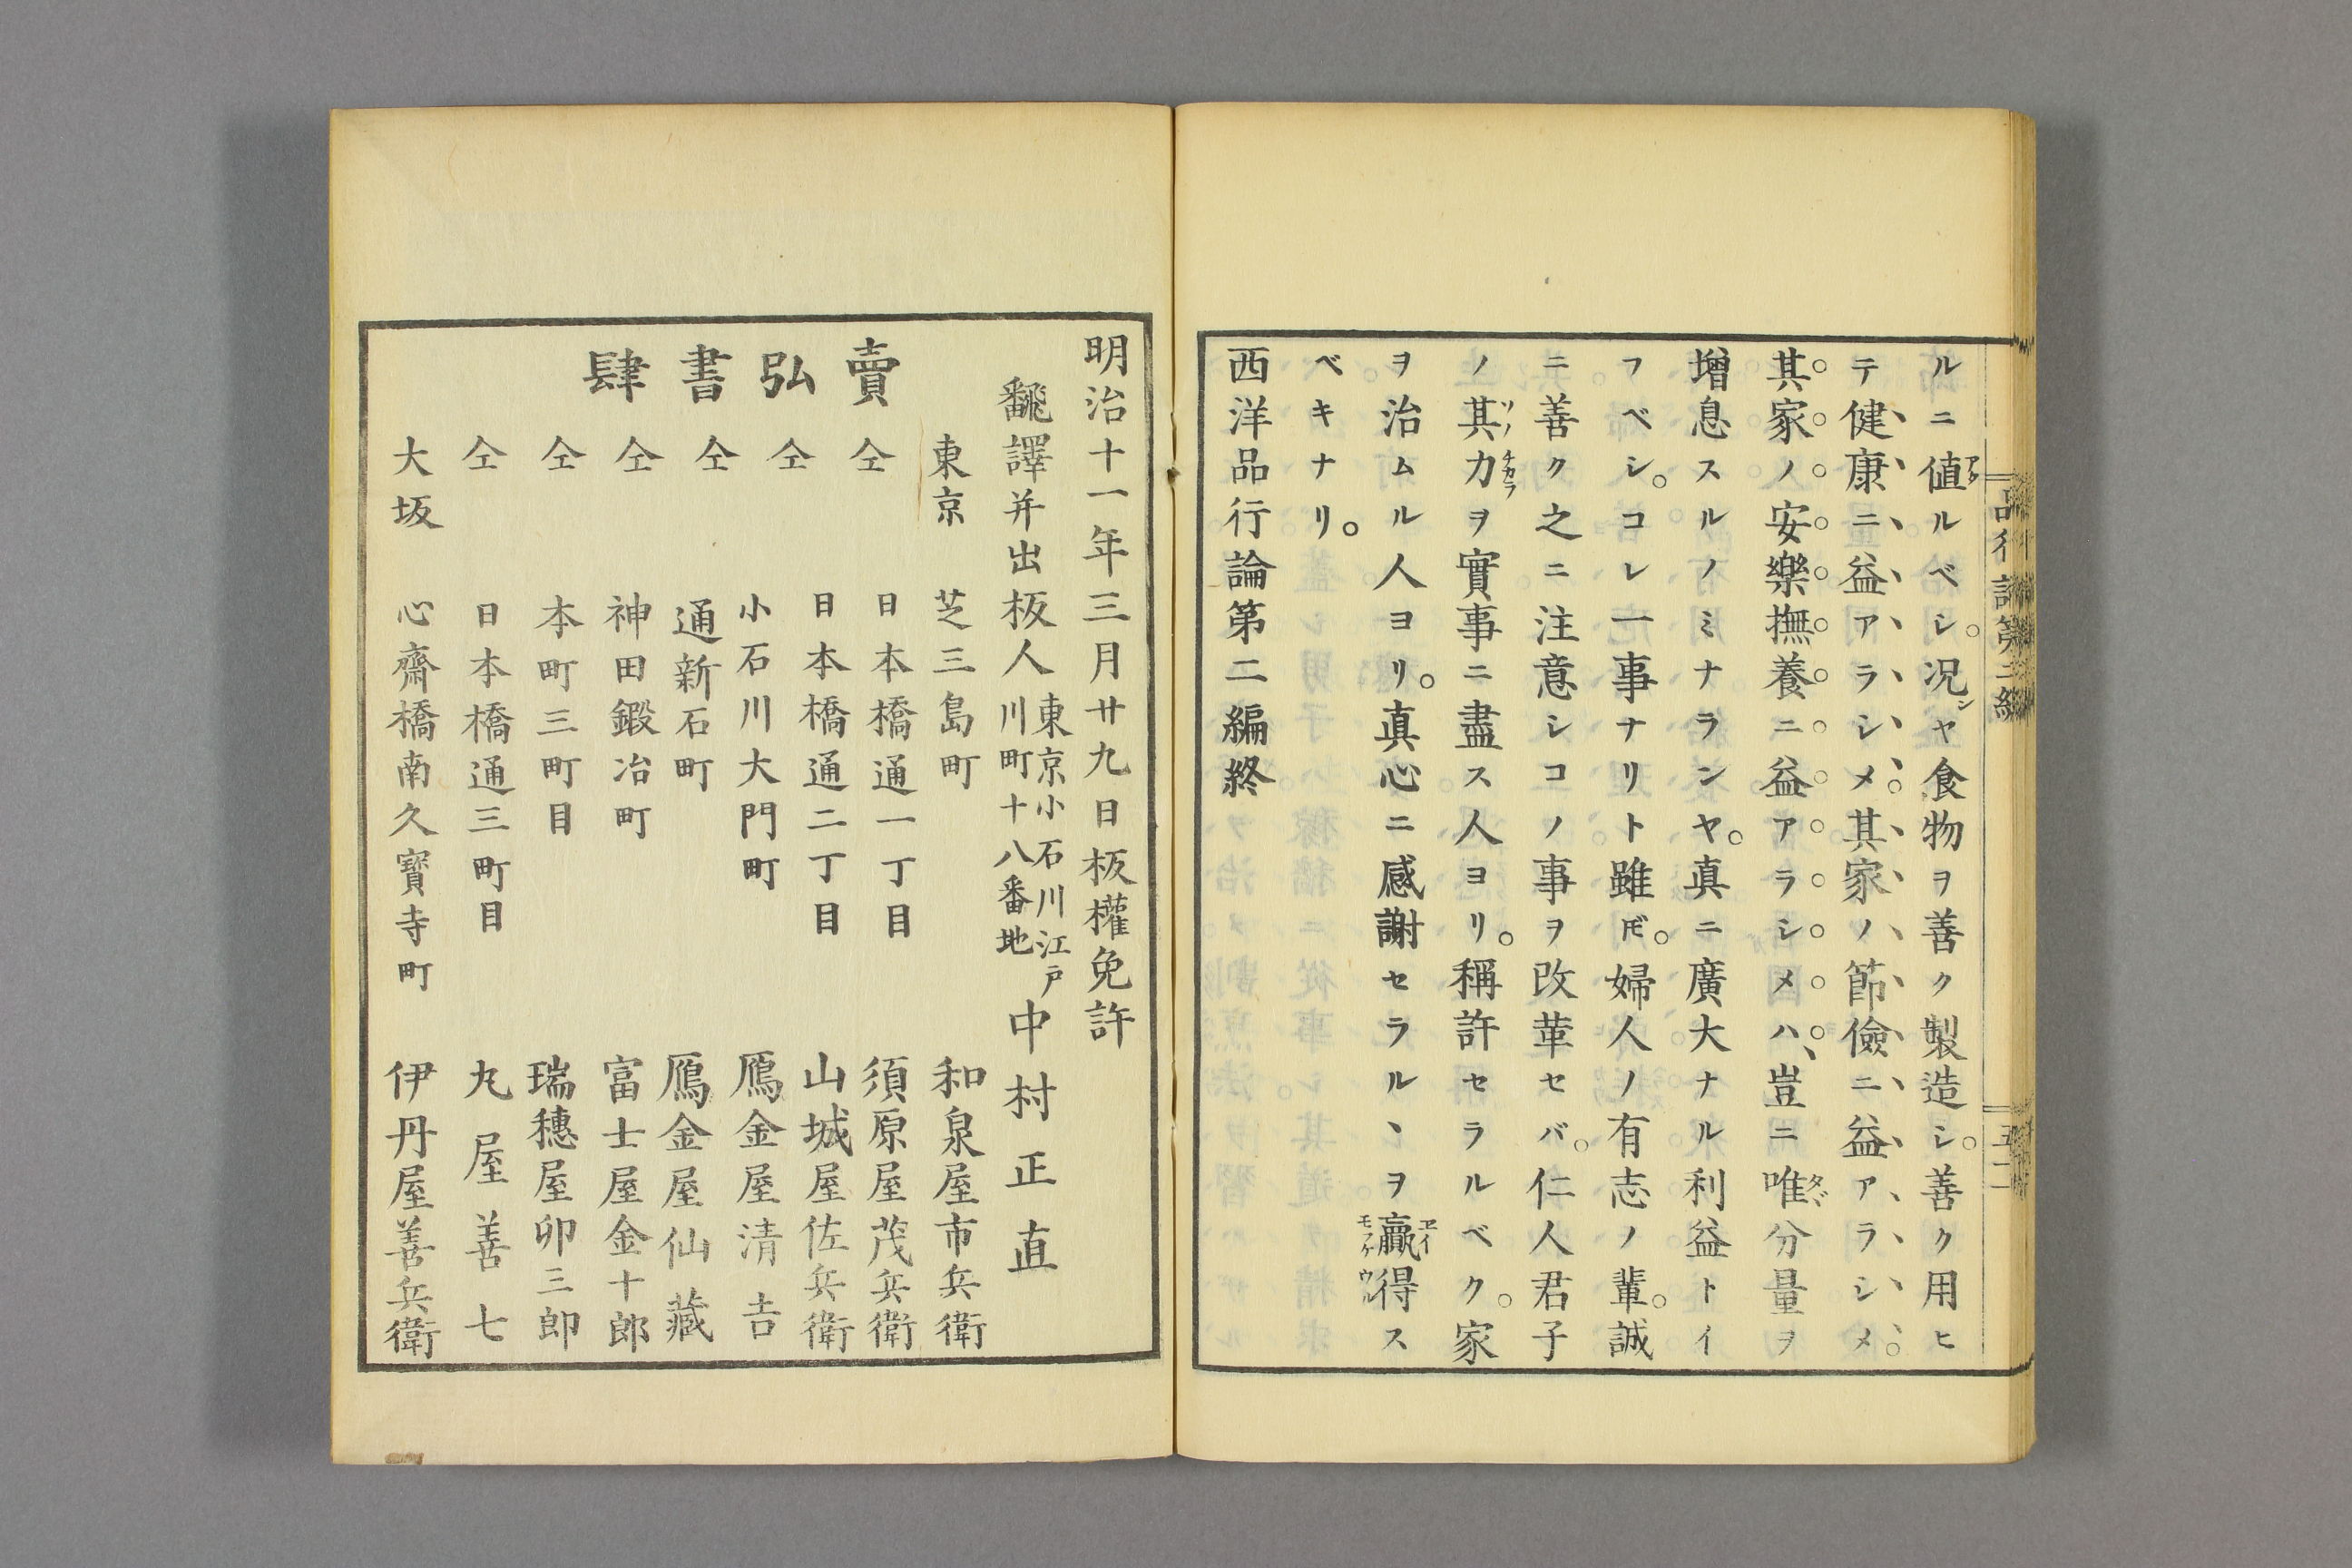 ルニ値ルベシ。况ヤ食物ヲ善ク製造シ。善ク用ヒ
テ健康ニ益アラシメ。其家ノ節儉ニ益アラシメ。
其家ノ安樂撫養ニ益アラシメハ、豈ニ唯分量ヲ
增息スルノミナランヤ。真ニ廣大ナル利益トイ
フベシ。コレ一事ナリト雖𪜈。婦人ノ有志ノ輩。誠
ニ善ク之ニ注意シコノ事ヲ改革セバ。仁人君子
ノ其力ヲ實事ニ盡ス人ヨリ。稱許セラルベク。家
ヲ治ムル人ヨリ。真心ニ感謝セラルヽヲ贏得ス
ベキナリ。
西洋品行論第二編終
明治十一年三月廿九日板權免許
飜譯并出板人 東京小石川江戸
川町十八番地 中村正直
賣弘書肆
東京 芝三島町 和泉屋市兵衛
仝 日本橋通一丁目 須原屋茂兵衛
仝 日本橋通二丁目 山城屋佐兵衛
仝 小石川大門町 鴈金屋清吉
仝 通新石町 鴈金屋仙藏
仝 神田鍛冶町 富士屋金十郎
仝 本町三町目 瑞穗屋卯三郎
仝 日本橋通三町目 丸屋善七
大坂 心齋橋南久寶寺町 伊丹屋善兵衛